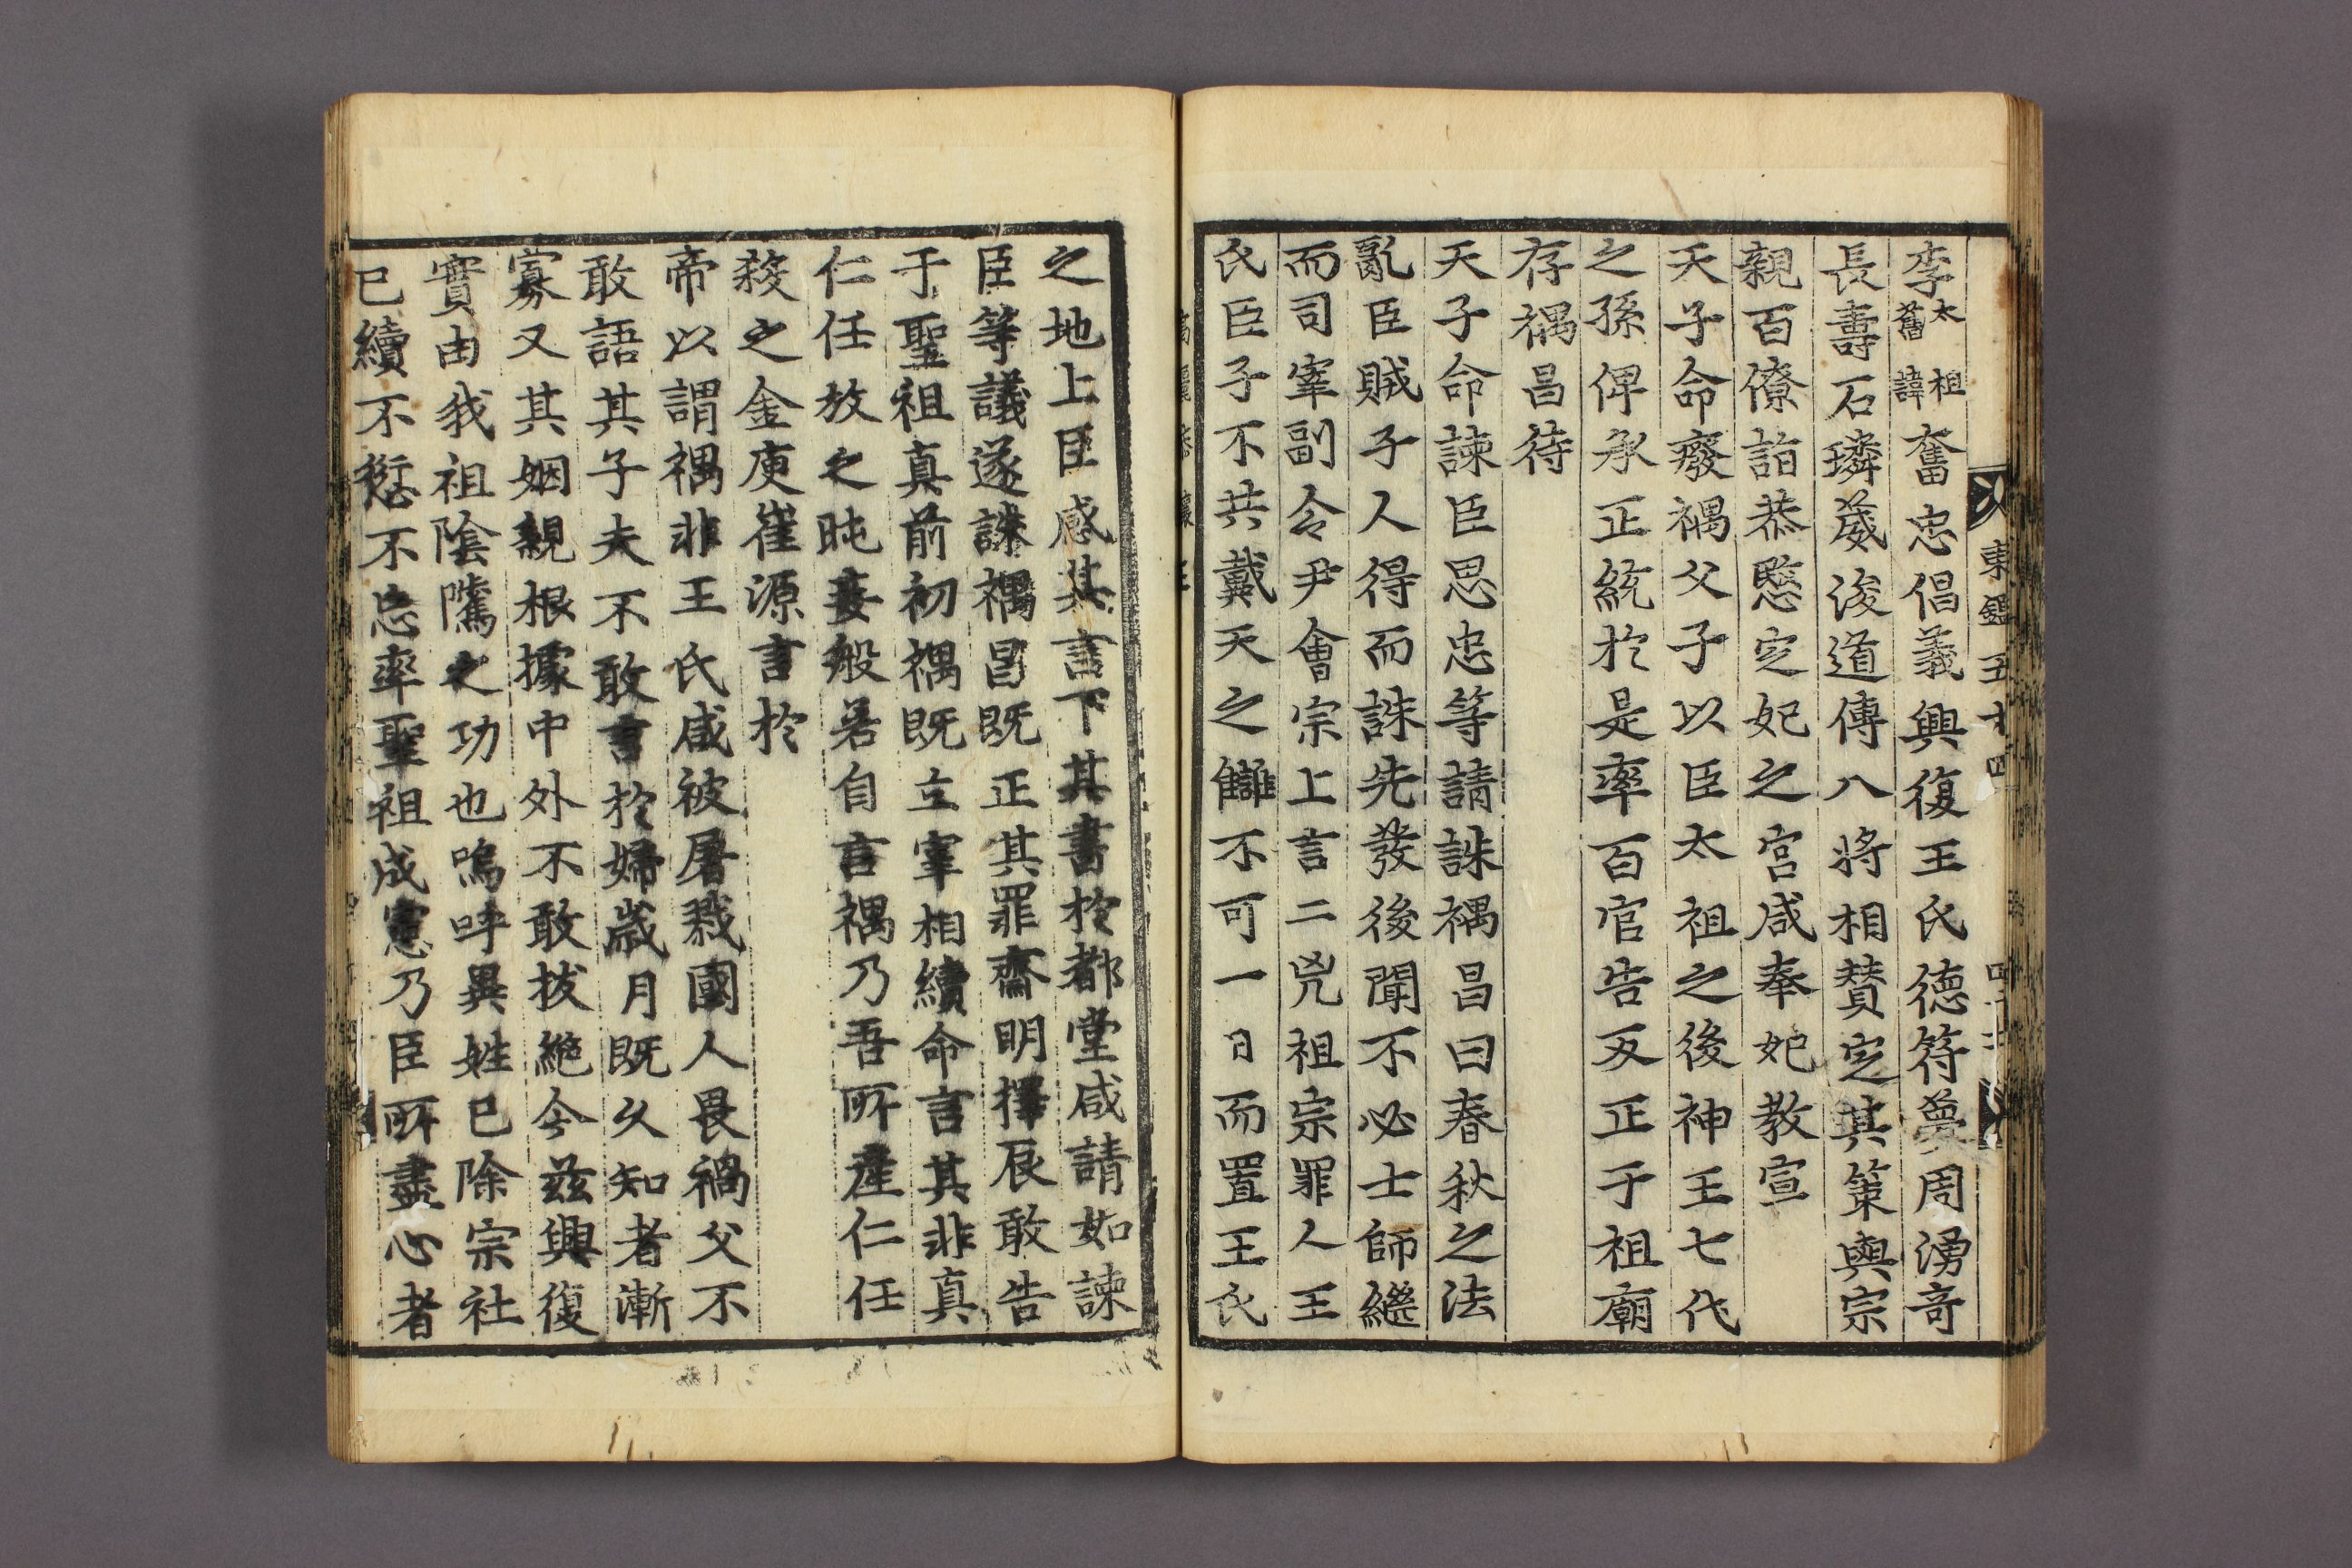 東鑑五十四
李太祖舊諱奮忠倡義興復王氏德符夢周湧奇
長壽石璘葳浚道傳八將相賛定其策與宗
親百僚詣恭愍定妃之宮咸奉妃教宣
天子命廢禑父子以臣太祖之後神王七代
之孫俾承正統於是率百官告反正于祖廟
存禑昌待
天子命諫臣思忠等請誅禑昌曰春秋之法
亂臣賊子人得而誅先發後聞不必士師繼
而司宰副令尹會宗上言二兇祖宗罪人王
氏臣子不共戴天之讎不可一日而置王氏
之地上臣感其言下其書於都堂咸請如諫
臣等議遂誅禑昌既正其罪齋明擇辰敢告
于聖祖真前初禑既立宰相續命言其非真
仁任放之旽妾般若自言禑乃吾所產仁任
殺之金庾崔源言於
帝以謂禑非王氏咸被屠戮國人畏禍父不
敢語其子夫不敢言於婦歲月既久知者漸
寡又其姻親根據中外不敢拔絶今兹興復
實由我祖陰隲之功也嗚呼異姓已除宗社
已續不愆不忘率聖祖成憲乃臣所盡心者